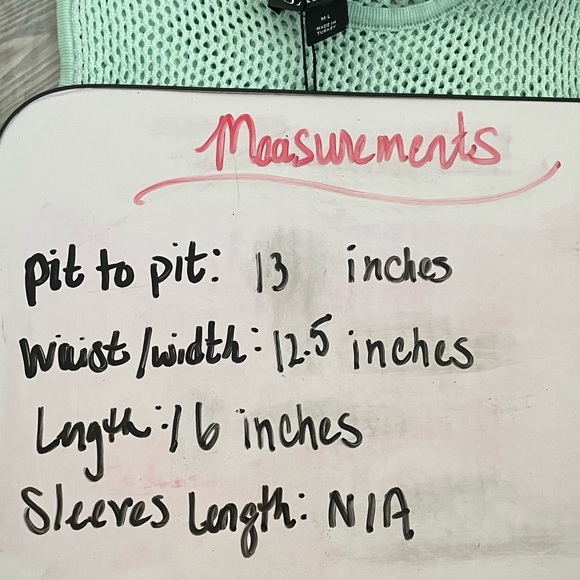 M L
MADE IN
TURKEY
Measurements
pit to pit: 13 inches
Waist/width: 12.5 inches
Length: 16 inches
Sleeves Length: N/A